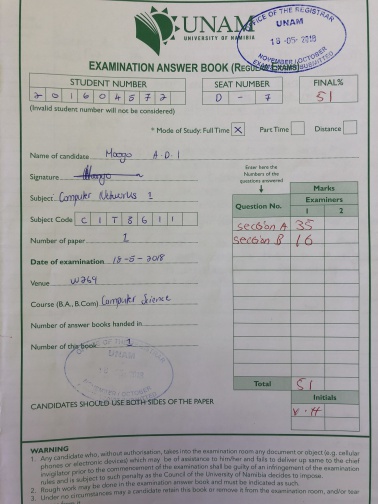 UNAM
UNIVERSITY OF NAMIBIA
OFFICE OF THE REGISTRAR
UNAM
18-05-2018
NOVEMBER/OCTOBER
EXAMINATION ANSWER BOOK (REGULAR EXAMS)
STUDENT NUMBER
SEAT NUMBER
FINAL%
201604577
D - 7
51
(Invalid student number will not be considered)
* Mode of Study: Full Time X Part Time Distance
Name of candidate Moogo A.D.I
Signature Moogo
Enter here the Numbers of the questions answered
Subject Computer Networks 1
Subject Code CIT3611
Number of paper 1
Date of examination 18-5-2018
Venue W264
Course (B.A., B.Com) Computer Science
Number of answer books handed in
Number of this book 1
Marks
Question No. Examiners
1 2
section A 35
section B 16
Total 51
Initials
V.H
UNAM
CANDIDATES SHOULD USE BOTH SIDES OF THE PAPER
WARNING
1. Any candidate who, without authorisation, takes into the examination room any document or object (e.g. cellular
phones or electronic devices) which may be of assistance to him/her and fails to deliver up same to the chief
invigilator prior to the commencement of the examination shall be guilty of an infringement of the examination
rules and is subject to such penalty as the Council of the University of Namibia decides to impose.
2. Rough work may be done in the examination answer book and must be indicated as such.
3. Under no circumstances may a candidate retain this book or remove it from the examination room, and/or tear